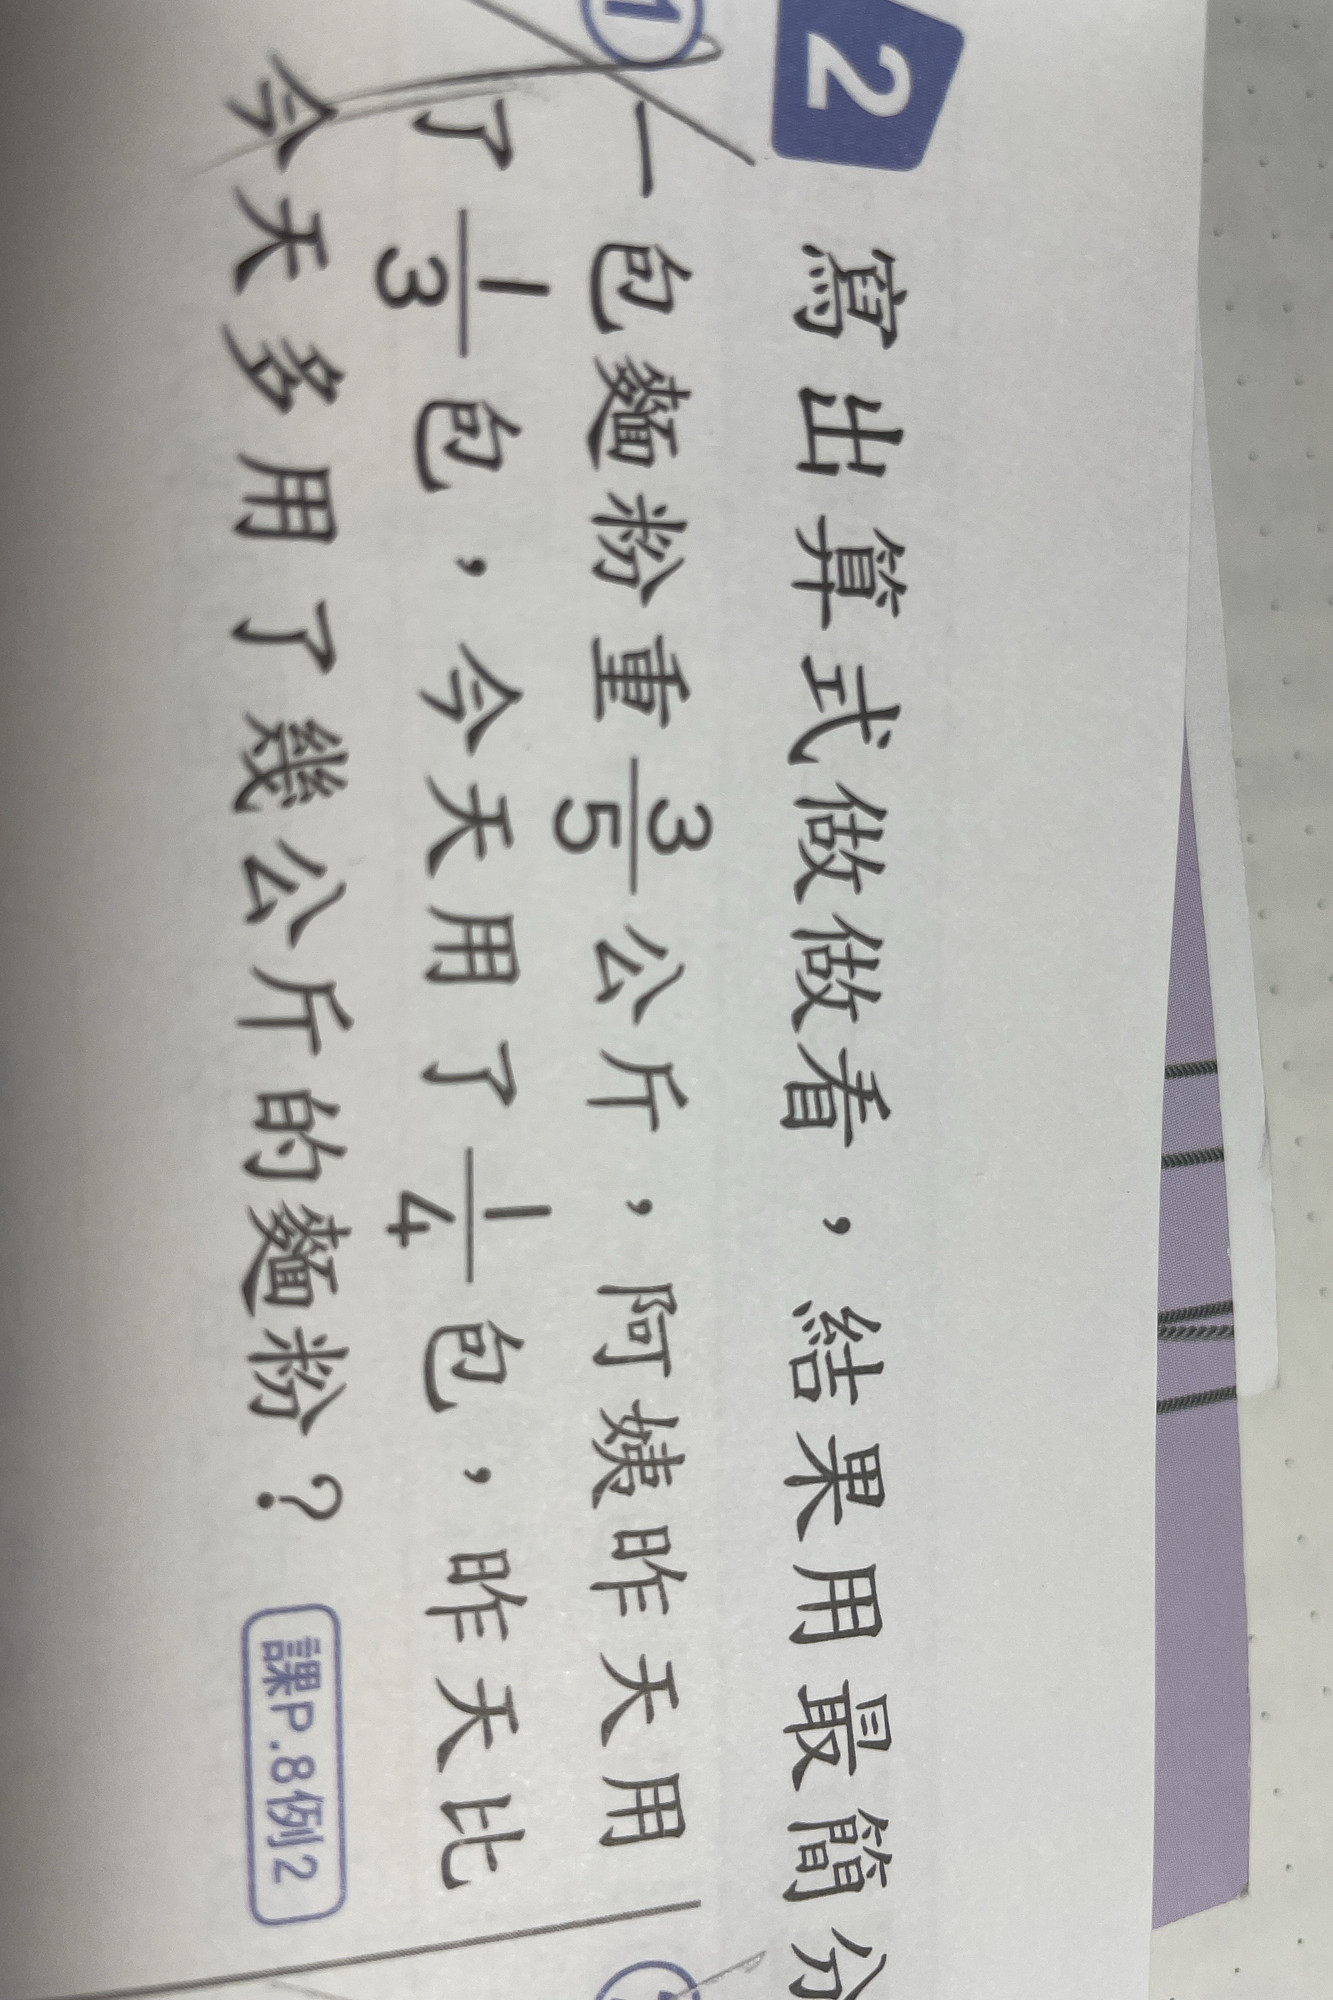 2 寫出算式做做看，結果用最簡分
① 一包麵粉重 3/5 公斤，阿姨昨天用
了 1/3 包，今天用了 1/4 包，昨天比
今天多用了幾公斤的麵粉？ 課P.8例2